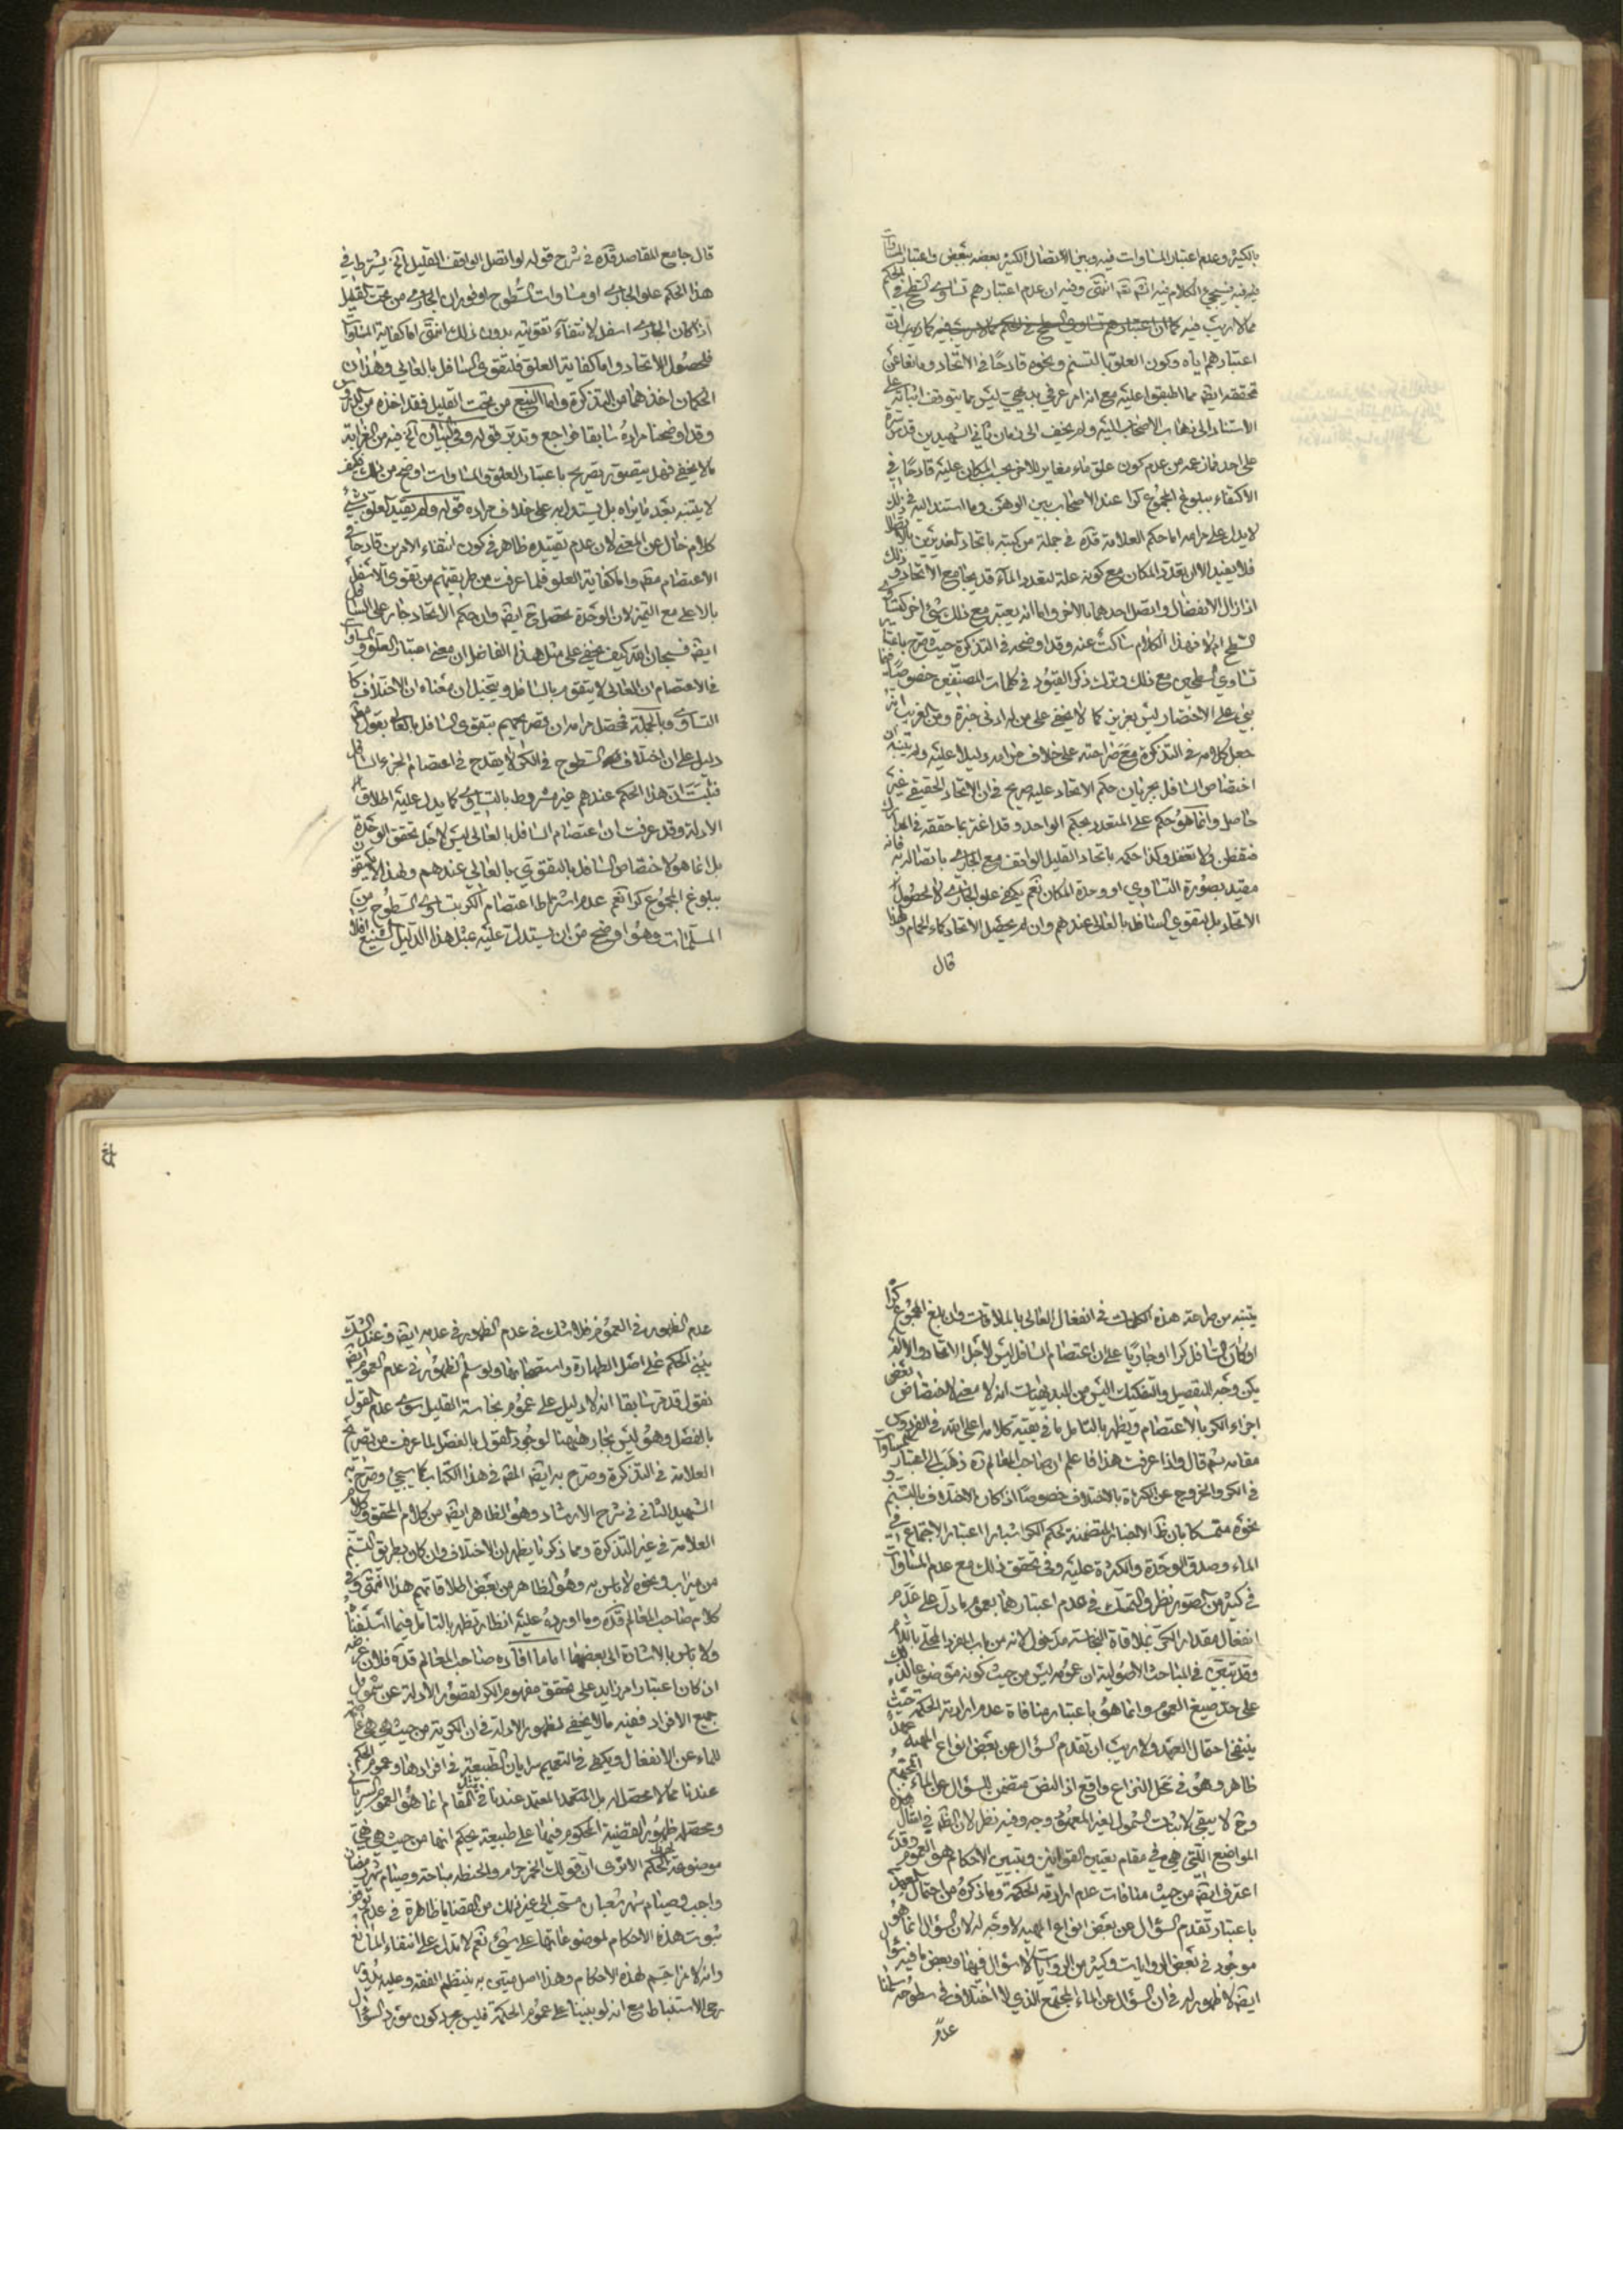 بالكثير وعدم اعتبار المساوات فيه وبين الاتصال الكثير بعضه ببعض واعتبار المساوات
فيه فسيجئ الكلام فيه انشه تعه انتهى وفيه ان عدم اعتبارهم تساوى السطح في الحكم
مما لا ريب فيه كما ان اعتبارهم تساوى السطح في الحكم مما لا ريب فيه كما ريب ان
اعتبارهم اياه وكون العلو بالتسنم ونحوه قادحا في الاتحاد ومانعا عن
تحققه ايضه مما اطبقوا عليه مع انه امر عرفي بديهي ليس مما يتوقف اثباته على
الاستناد الى ذهاب الاصحاب اليه ولم يخف الى زمان ثاني الشهيدين قدس سره
على احد فما زعمه من عدم كون علو ماء مغاير للاخر بحسب المكان عليه قادحا في
الاكتفاء ببلوغ المجموع كرا عند الاصحاب بين الوهن وما استند اليه في ذلك
لا يدل على مرامه اما حكم العلامة قده في جملة من كتبه باتحاد الغديرين بالاتصال
فلا يفيد الا ان تعدد المكان مع كونه علة لتعدد الماء قد يجامع الاتحاد وذلك
اذا زال الانفصال واتصل احدهما بالاخر واما انه يعتبر مع ذلك شئ اخر كتساوى
السطح ام لا فهذا الكلام ساكت عنه وقد اوضحه في التذكرة حيث صرح باعتبار
تساوي السطحين مع ذلك وترك ذكر القيود في كلمات المصنفين خصوصا فيما
بني على الاختصار ليس بعزيز كما لا يخفى على من له ادنى خبرة ومن الغريب انه
جعل كلامه في التذكرة مع صراحته على خلاف مرامه دليلا عليه ولم يتنبه ان
اختصاص السافل بجريان حكم الاتحاد عليه صريح في ان الاتحاد الحقيقي غير
حاصل وانما هو حكم على المتعدد بحكم الواحد وقد اغتر بما حققه في المعالم
فتفطن ولا تغفل وكذا حكمه باتحاد القليل الواقف مع الجاري باتصاله به فانه
مقيد بصورة التساوي او وحدة المكان نعم يكفي علو الجاري لا لحصول
الاتحاد بل لتقوي السافل بالعالي عندهم وان لم يحصل الاتحاد كماء الحمام ولهذا
قال
قال جامع المقاصد قده في شرح قوله لو اتصل الواقف القليل آلخ يشترط في
هذا الحكم علو الجاري او مساوات السطوح او فوران الجاري من تحت القليل
اذا كان الجاري اسفل لانتفاء تقويته بدون ذلك انتهى اما كفاية المساوات
فلحصول الاتحاد واما كفاية العلو فلتقوي السافل بالعالي وهذان
الحكمان اخذهما من التذكرة واما النبع من تحت القليل فقد اخذه من الدروس
وقد اوضحنا مراده سابقا فراجع وتدبر قوله وفي البيان آلخ فيه من الغرابة
ما لا يخفى فهل يتصور تصريح باعتبار العلو والمساوات اوضح من ذلك فكيف
لا يتنبه بعد ما يراه بل يستدل به على خلاف مراده قوله ولم يقيد العلو بشئ
كلام خال عن المعنى لان عدم تقييده ظاهر في كون انتفاء الامرين قادحا في
الاعتصام مطه واما كفاية العلو فلما عرفت من طريقتهم من تقوى الاسفل
بالاعلى مع التميز لان الوحدة تحصل ح ايضه وان حكم الاتحاد جار على السافل
ايضه فسبحان الله كيف يخفى على مثل هذا الفاضل ان معنى اعتبار العلو والمساوات
في الاعتصام ان العالي لا يتقوم بالسافل ويتخيل ان معناه ان الاختلاف كا
التساوى وبالجملة فمحصل مرامه ان تصريحهم بتقوى السافل بالعالي بقول مطلق
دليل على ان اختلاف السطوح في الكر لا يقدح في اعتصام الجزء السافل
فثبت ان هذا الحكم عندهم غير مشروط بالتساوى كما يدل عليه اطلاق
الادلة وقد عرفت ان اعتصام السافل بالعالي ليس لاجل تحقق الوحدة
بل انما هو لاختصاص السافل بالتقوي بالعالي عندهم ولهذا لا يكتفون
ببلوغ المجموع كرا نعم عدم اشتراط اعتصام الكر بتساوى السطوح من
المسلمات وهو اوضح من ان يستدل عليه بمثل هذا الدليل الشنيع افلا
يتنبه من صراحة هذه الكلمات في انفعال العالي بالملاقات وان بلغ المجموع كرا
او كان السافل كرا او جاريا على ان اعتصام السافل ليس لاجل الاتحاد والا لم
يكن وجه للتفصيل والتفكيك اليس من البديهيات انه لا معنى لاختصاص بعض
اجزاء الكر بالاعتصام ويظهر بالتامل ما في بقية كلامه اعلى الله في الفردوس
مقامه ثم قال واذا عرفت هذا فاعلم ان صاحب المعالم ره ذهب الى اعتبار المساوات
في الكر والخروج عن الكرية بالاختلاف خصوصا اذا كان الاختلاف بالتسنم و
نحوه متمسكا بان ظه الاخبار المتضمنة لحكم الكر اشبارا اعتبار الاجتماع في
الماء وصدق الوحدة والكثرة عليه وفي تحقق ذلك مع عدم المساوات
في كثير من الصور نظر والتمسك في عدم اعتبارهما بعموم ما دل على عدم
انفعال مقدار الكر بملاقاة النجاسة مدخول لانه من باب المفرد المحلى باللام
وقد تبين في المباحث الاصولية ان عمومه ليس من حيث كونه موضوعا لذلك
على حد صيغ العموم وانما هو باعتبار منافاة عدم ارادته الحكمة حيث
ينتفي احتمال العهد ولا ريب ان تقدم السؤال عن بعض انواع المهية عهد
ظاهر وهو في محل النزاع واقع اذ النص متضمن للسؤال عن الماء المجتمع
وح لا يبقى لاثبات الشمول لغير المعهود وجه وفيه نظر لان الظه في امثال هذه
المواضع التي هي في مقام تعيين القوانين وتبيين الاحكام هو العموم وقد
اعترف ايضه من حيث منافات عدم ارادته الحكمة وما ذكره من احتمال العهد
باعتبار تقدم السؤال عن بعض انواع المهية لا وجه له لان السؤال انما هو
موجود في بعض الروايات وكثير من الروايات لا سؤال فيها وبعض ما فيه سؤال
ايضه لا ظهور له في ان السؤال عن الماء المجتمع الذي لا اختلاف في سطوحه سلمنا
عدم
عدم الظهور في العموم فلا شك في عدم الظهور في عدمه ايضه وعند الشك
يبنى الحكم على اصل الطهارة واستصحابها ولو سلم الظهور في عدم العموم ايضه
نقول قد مر سابقا انه لا دليل على عموم نجاسة القليل سوى عدم القول
بالفصل وهو ليس بجار هيهنا لوجود القول بالفصل لما عرفت من تصريح
العلامة في التذكرة وصرح به ايضه المصه في هذا الكتاب كما سيجئ وصرح به
الشهيد الثاني في شرح الارشاد وهو الظاهر ايضه من كلام المحقق وكلام
العلامة في غير التذكرة ومما ذكرنا يظهر ان الاختلاف وان كان بطريق التسنم
من ميزاب ونحوه لا باس به وهو الظاهر من بعض اطلاقاتهم هذا انتهى وفي
كلام صاحب المعالم قده وما اورده عليه انظار تظهر بالتامل فيما اسلفنا
ولا باس بالاشارة الى بعضها اما ما افاده صاحب المعالم قده فلان غرضه
ان كان اعتبار امر زايد على تحقق مفهوم الكر لقصور الادلة عن شمول
جميع الافراد ففيه ما لا يخفى لظهور الادلة في ان الكرية من حيث هي هي عاصمة
للماء عن الانفعال ويكفى في التعميم سريان الطبيعة في افرادها وعموم الحكم
عندنا مما لا محصل له بل المعتمد عندنا في امثال المقام انما هو العموم السرياني
ومحصله ظهور القضية المحكوم فيها على طبيعة بحكم انها من حيث هي هي
موضوعة لهذا الحكم الا ترى ان قولك الخمر حرام والحنطه مباحة وصيام شهر رمضان
واجب وصيام شهر شعبان مستحب الى غير ذلك من القضايا ظاهرة في عدم توقف
ثبوت هذه الاحكام لموضوعاتها على شئ نعم لا تدل على انتفاء المانع
وانه لا مزاحم لهذه الاحكام وهذا اصل متين به ينتظم الفقه وعليه يدور
رحى الاستنباط مع انه لو بنينا على عموم الحكمة فليس مجرد كون مورد السؤال